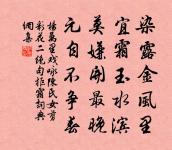 染露金風里
宜霜玉水濱
莫嫌開最晚
元自不爭春
楊萬里戲詠陳氏女剪
彩花二絕句拒霜詞典
網集